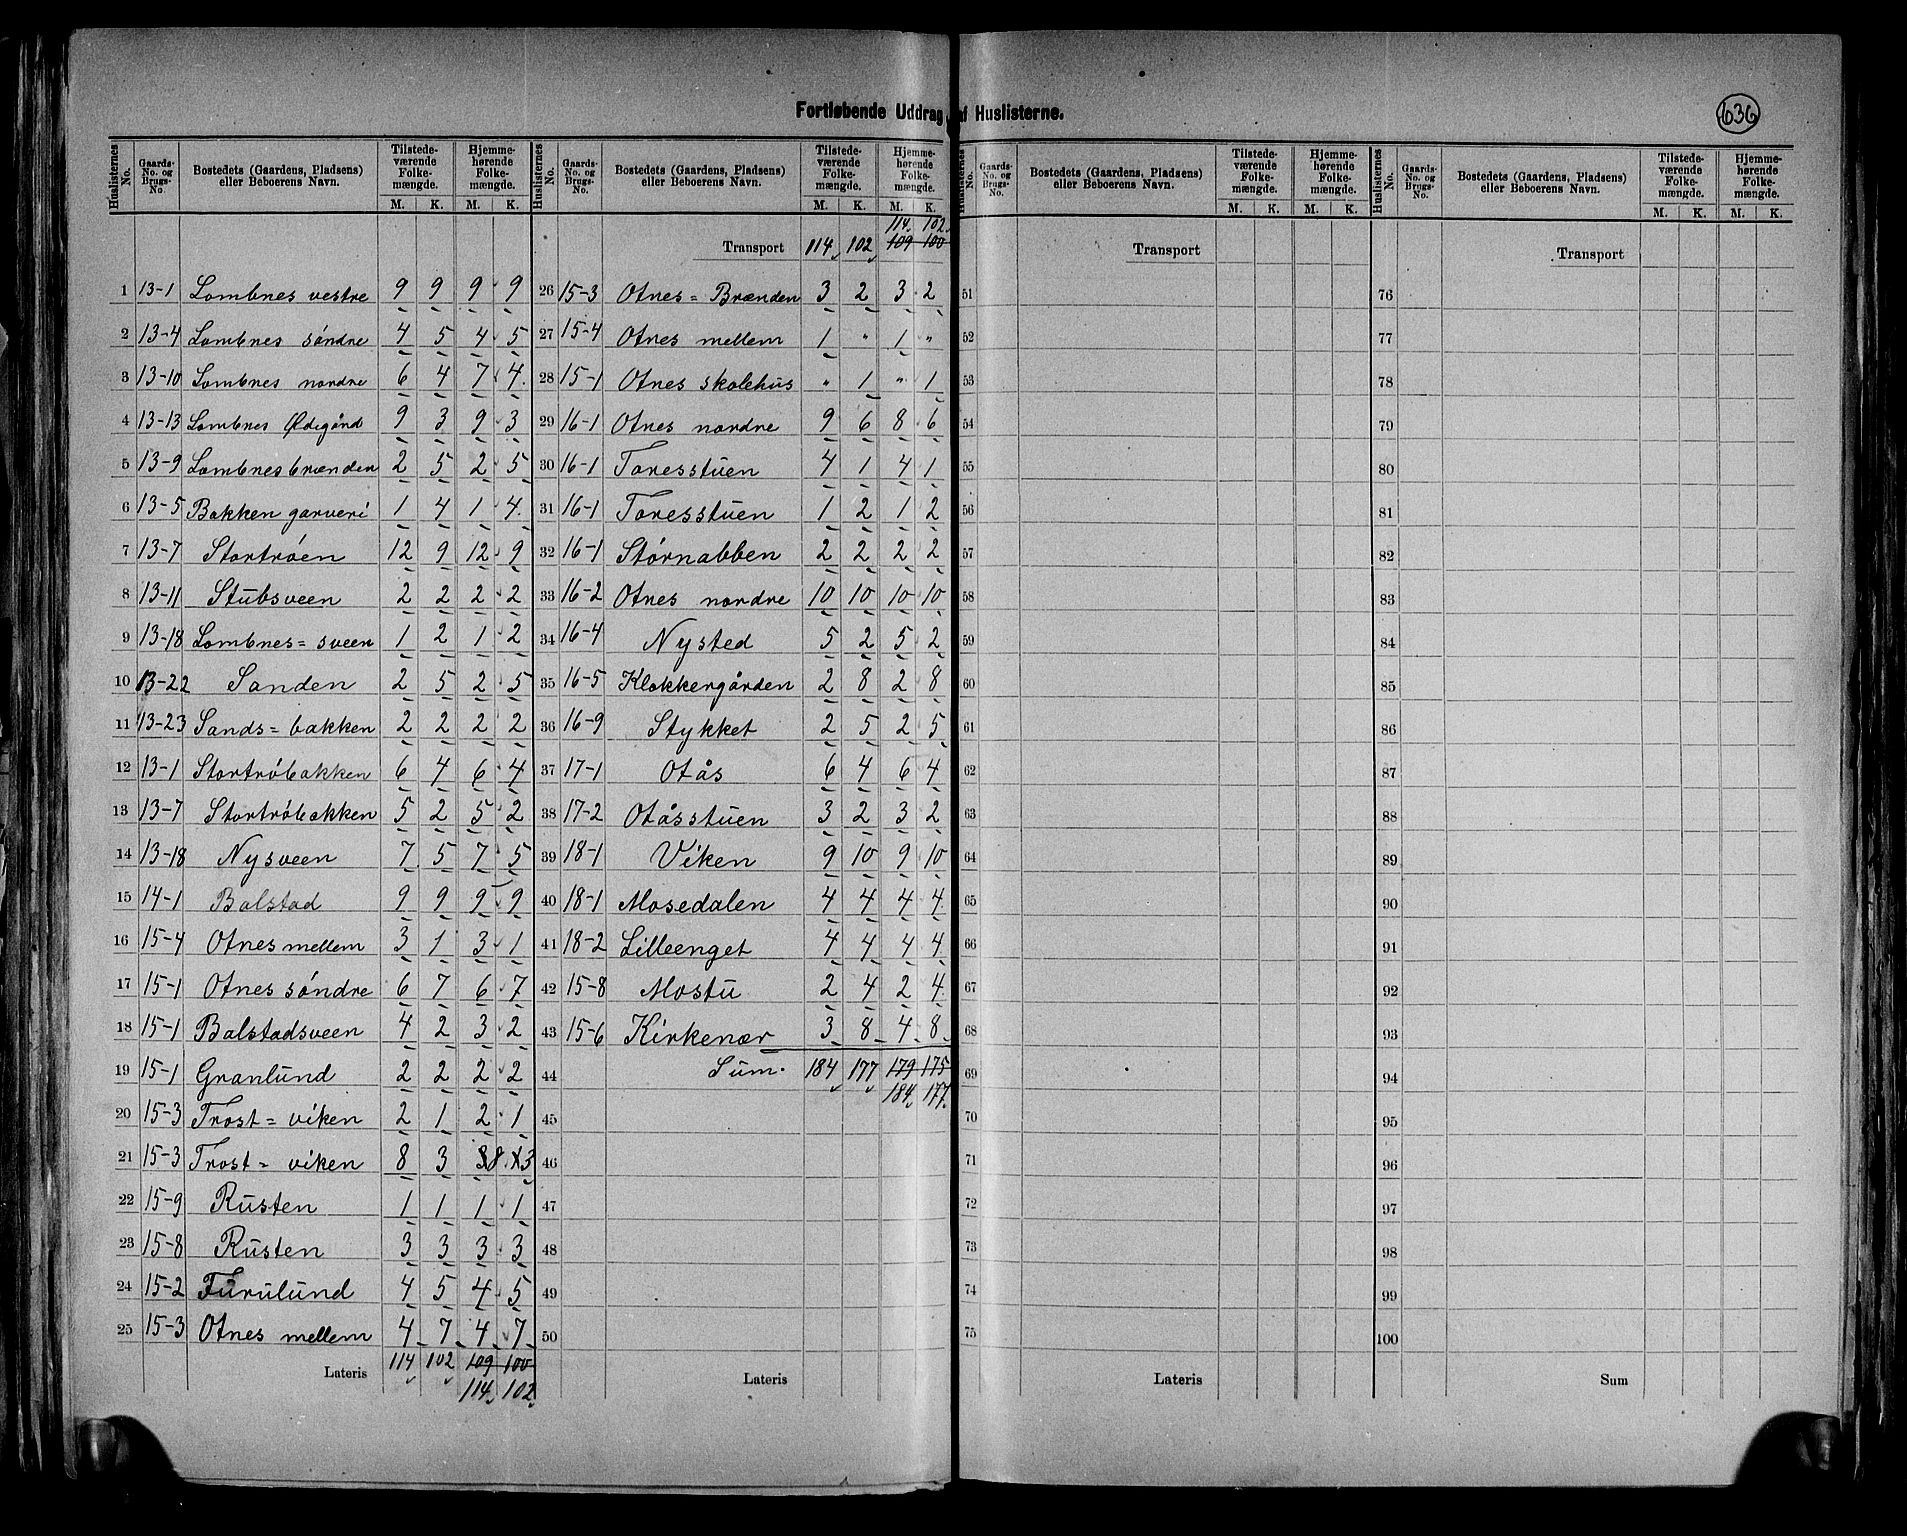 Fortløbende Uddrag af Huslisterne.
636
Huslisternes No. | Gaards-No. og Brugs-No. | Bostedets (Gaardens, Pladsens) eller Beboerens Navn. | Tilstedeværende Folkemængde. M. K. | Hjemmehørende Folkemængde. M. K.
1 13-1 Lombnes vestre 9 9 9 9
2 13-4 Lombnes søndre 4 5 4 5
3 13-10 Lombnes nordre 6 4 7 4
4 13-13 Lombnes Ødegård 9 3 9 3
5 13-9 Lombnesbrænden 2 5 2 5
6 13-5 Bakken garveri 1 4 1 4
7 13-7 Stortrøen 12 9 12 9
8 13-11 Stubsveen 2 2 2 2
9 13-18 Lombnes=sveen 1 2 1 2
10 13-22 Sanden 2 5 2 5
11 13-23 Sands=bakken 2 2 2 2
12 13-1 Stortrøbakken 6 4 6 4
13 13-7 Stortrøbakken 5 2 5 2
14 13-18 Nysveen 7 5 7 5
15 14-1 Balstad 9 9 9 9
16 15-4 Otnes mellem 3 1 3 1
17 15-1 Otnes søndre 6 7 6 7
18 15-1 Balstadsveen 4 2 3 2
19 15-1 Granlund 2 2 2 2
20 15-3 Trost=viken 2 1 2 1
21 15-3 Trost=viken 8 3 8 3
22 15-9 Rusten 1 1 1 1
23 15-8 Rusten 3 3 3 3
24 15-2 Furulund 4 5 4 5
25 15-3 Otnes mellem 4 7 4 7
Lateris 114 102 109 100
114 102
Huslisternes No. | Gaards-No. og Brugs-No. | Bostedets (Gaardens, Pladsens) eller Beboerens Navn. | Tilstedeværende Folkemængde. M. K. | Hjemmehørende Folkemængde. M. K.
114 102
Transport 114 102 109 100
26 15-3 Otnes=Brænden 3 2 3 2
27 15-4 Otnes mellem 1 " 1 "
28 15-1 Otnes skolehus " 1 " 1
29 16-1 Otnes nordre 9 6 8 6
30 16-1 Toresstuen 4 1 4 1
31 16-1 Toresstuen 1 2 1 2
32 16-1 Størnabben 2 2 2 2
33 16-2 Otnes nordre 10 10 10 10
34 16-4 Nysted 5 2 5 2
35 16-5 Klokkergården 2 8 2 8
36 16-9 Stykket 2 5 2 5
37 17-1 Otås 6 4 6 4
38 17-2 Otåsstuen 3 2 3 2
39 18-1 Viken 9 10 9 10
40 18-1 Mosedalen 4 4 4 4
41 18-2 Lilleenget 4 4 4 4
42 15-8 Mostu 2 4 2 4
43 15-6 Kirkenær 3 8 4 8
44 Sum. 184 177 179 175
184 177
45
46
47
48
49
50
Lateris
Huslisternes No. | Gaards-No. og Brugs-No. | Bostedets (Gaardens, Pladsens) eller Beboerens Navn. | Tilstedeværende Folkemængde. M. K. | Hjemmehørende Folkemængde. M. K.
Transport
51
52
53
54
55
56
57
58
59
60
61
62
63
64
65
66
67
68
69
70
71
72
73
74
75
Lateris
Huslisternes No. | Gaards-No. og Brugs-No. | Bostedets (Gaardens, Pladsens) eller Beboerens Navn. | Tilstedeværende Folkemængde. M. K. | Hjemmehørende Folkemængde. M. K.
Transport
76
77
78
79
80
81
82
83
84
85
86
87
88
89
90
91
92
93
94
95
96
97
98
99
100
Sum